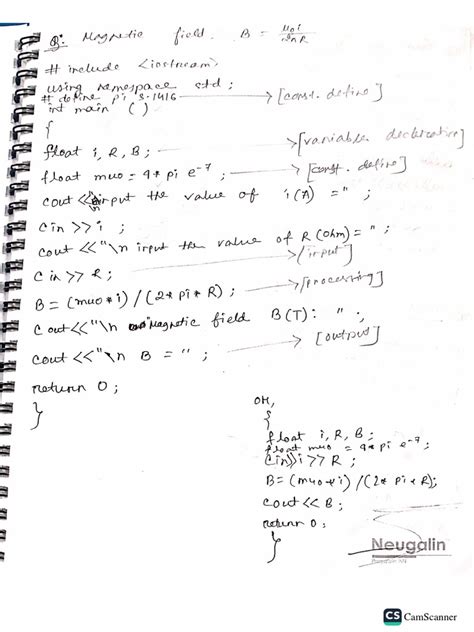 Q: Magnetic field. B = μ₀i/2πR
# include <iostream>
using namespace std ;
# define pi 3.1416 → [const. define]
int main ()
{
float i, R, B ; → [variable declaration]
float muo = 4* pi e-7 ; → [const. define]
cout << "input the value of i(A) =" ;
Cin >> i ;
cout << "\n input the value of R (ohm) = " ;
Cin >> R ; → [input]
B = (muo * i) / (2* pi * R) ; → [processing]
Cout << "\n Magnetic field B(T) : " .
cout << "\n B = " ; → [output]
return 0 ;
}
OR,
{
float i, R, B ;
float muo = 4* pi e-7 ;
Cin >> i >> R ;
B = (muo * i) / (2* pi * R) ;
cout << B ;
return 0 ;
}
Neugalin
CS CamScanner